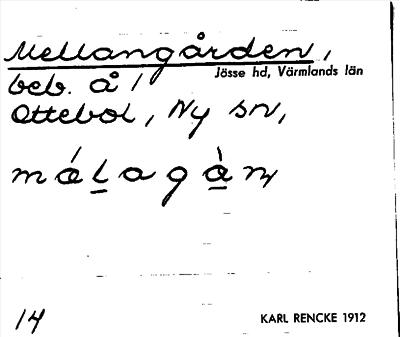 Mellangården,
Jösse hd, Värmlands län
beb. å /
Ottebol, Ny sn,
14
KARL RENCKE 1912